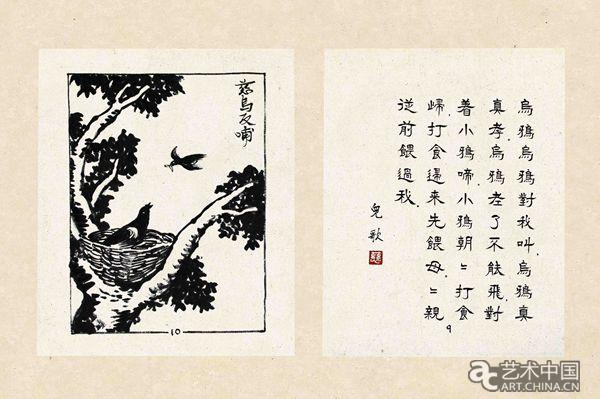 慈烏反哺
10
烏鴉烏鴉對我叫烏鴉真
真孝烏鴉老了不能飛對
着小鴉啼小鴉朝〻打食
歸打食歸來先餵母〻親
從前餵過我
兒歌
9
艺术中国
ART.CHINA.CN